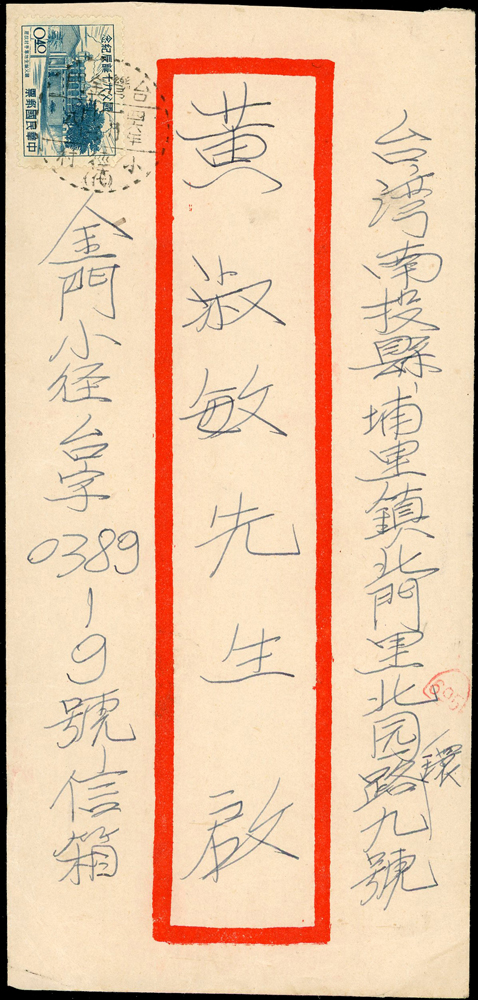 台湾南投縣埔里鎮北門里北园路九號
環
黄淑敏先生啟
金門小径台字0389-9號信箱
中華民國郵票
0.40